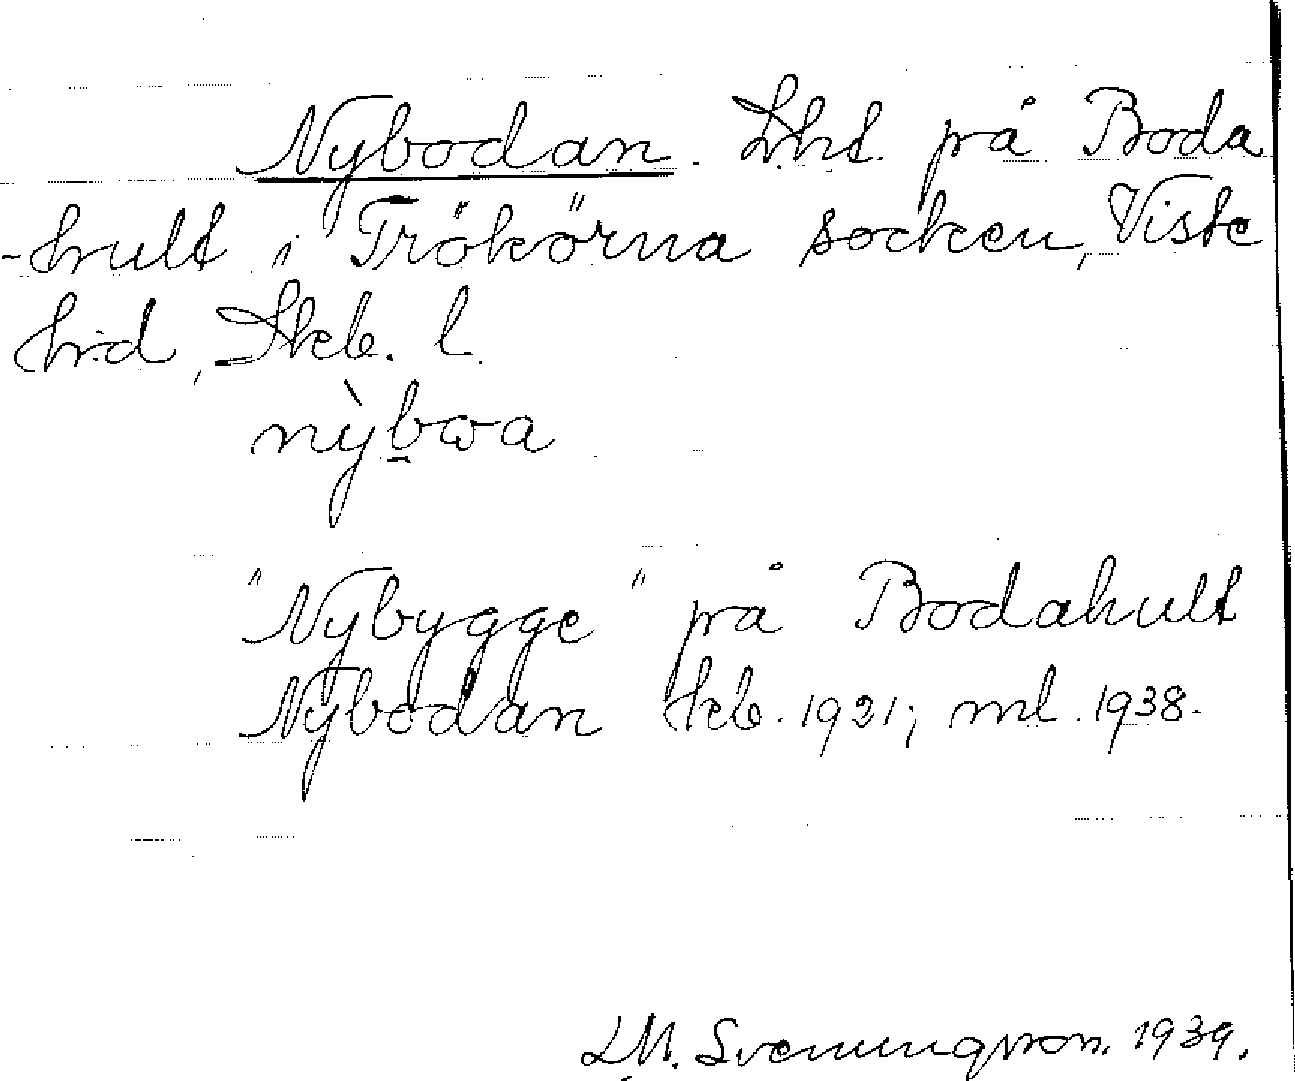 Nybodan. Lht. på Boda
-hult i Trökörna socken, Viste
hrd, Skb. l.
nỳb̲wa
"Nybygge" på Bodahult
Nybodan kb. 1921; ml. 1938.
L.M. Svenungsson. 1939.